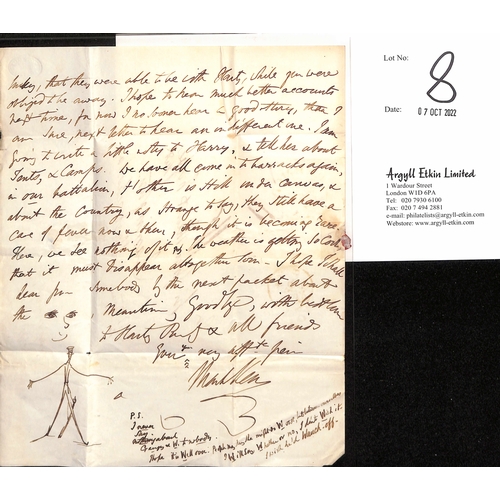 lucky, that they were able to be with Harty, while you were
obliged to be away. I hope to hear much better accounts
next time, for now I no sooner hear a good story, than I
am sure, next letter to hear an indifferent one. I am
going to write a little note to Harry, & tell him about
Tents, & Camps. We have all come into barracks again,
in our battalion, t'other is still under canvas, &
about the Country, as strange to say, they still have a
case of fever now & then, though it is becoming rare.
Here, we see nothing of it now. The weather is getting so cool
that it must disappear altogether soon. I hope I shall
hear from somebody by the next packet about
the
meantime, Goodbye, with best love
to Harty & all friends
Ever my affte
P.S.
I never
say
nothing about
nobody.
Hope it's well over.
Lot No:
8
Date: 07 OCT 2022
Argyll Etkin Limited
1 Wardour Street
London W1D 6PA
Tel: 020 7930 6100
Fax: 020 7 494 2881
e-mail: philatelists@argyll-etkin.com
Webstore: www.argyll-etkin.com